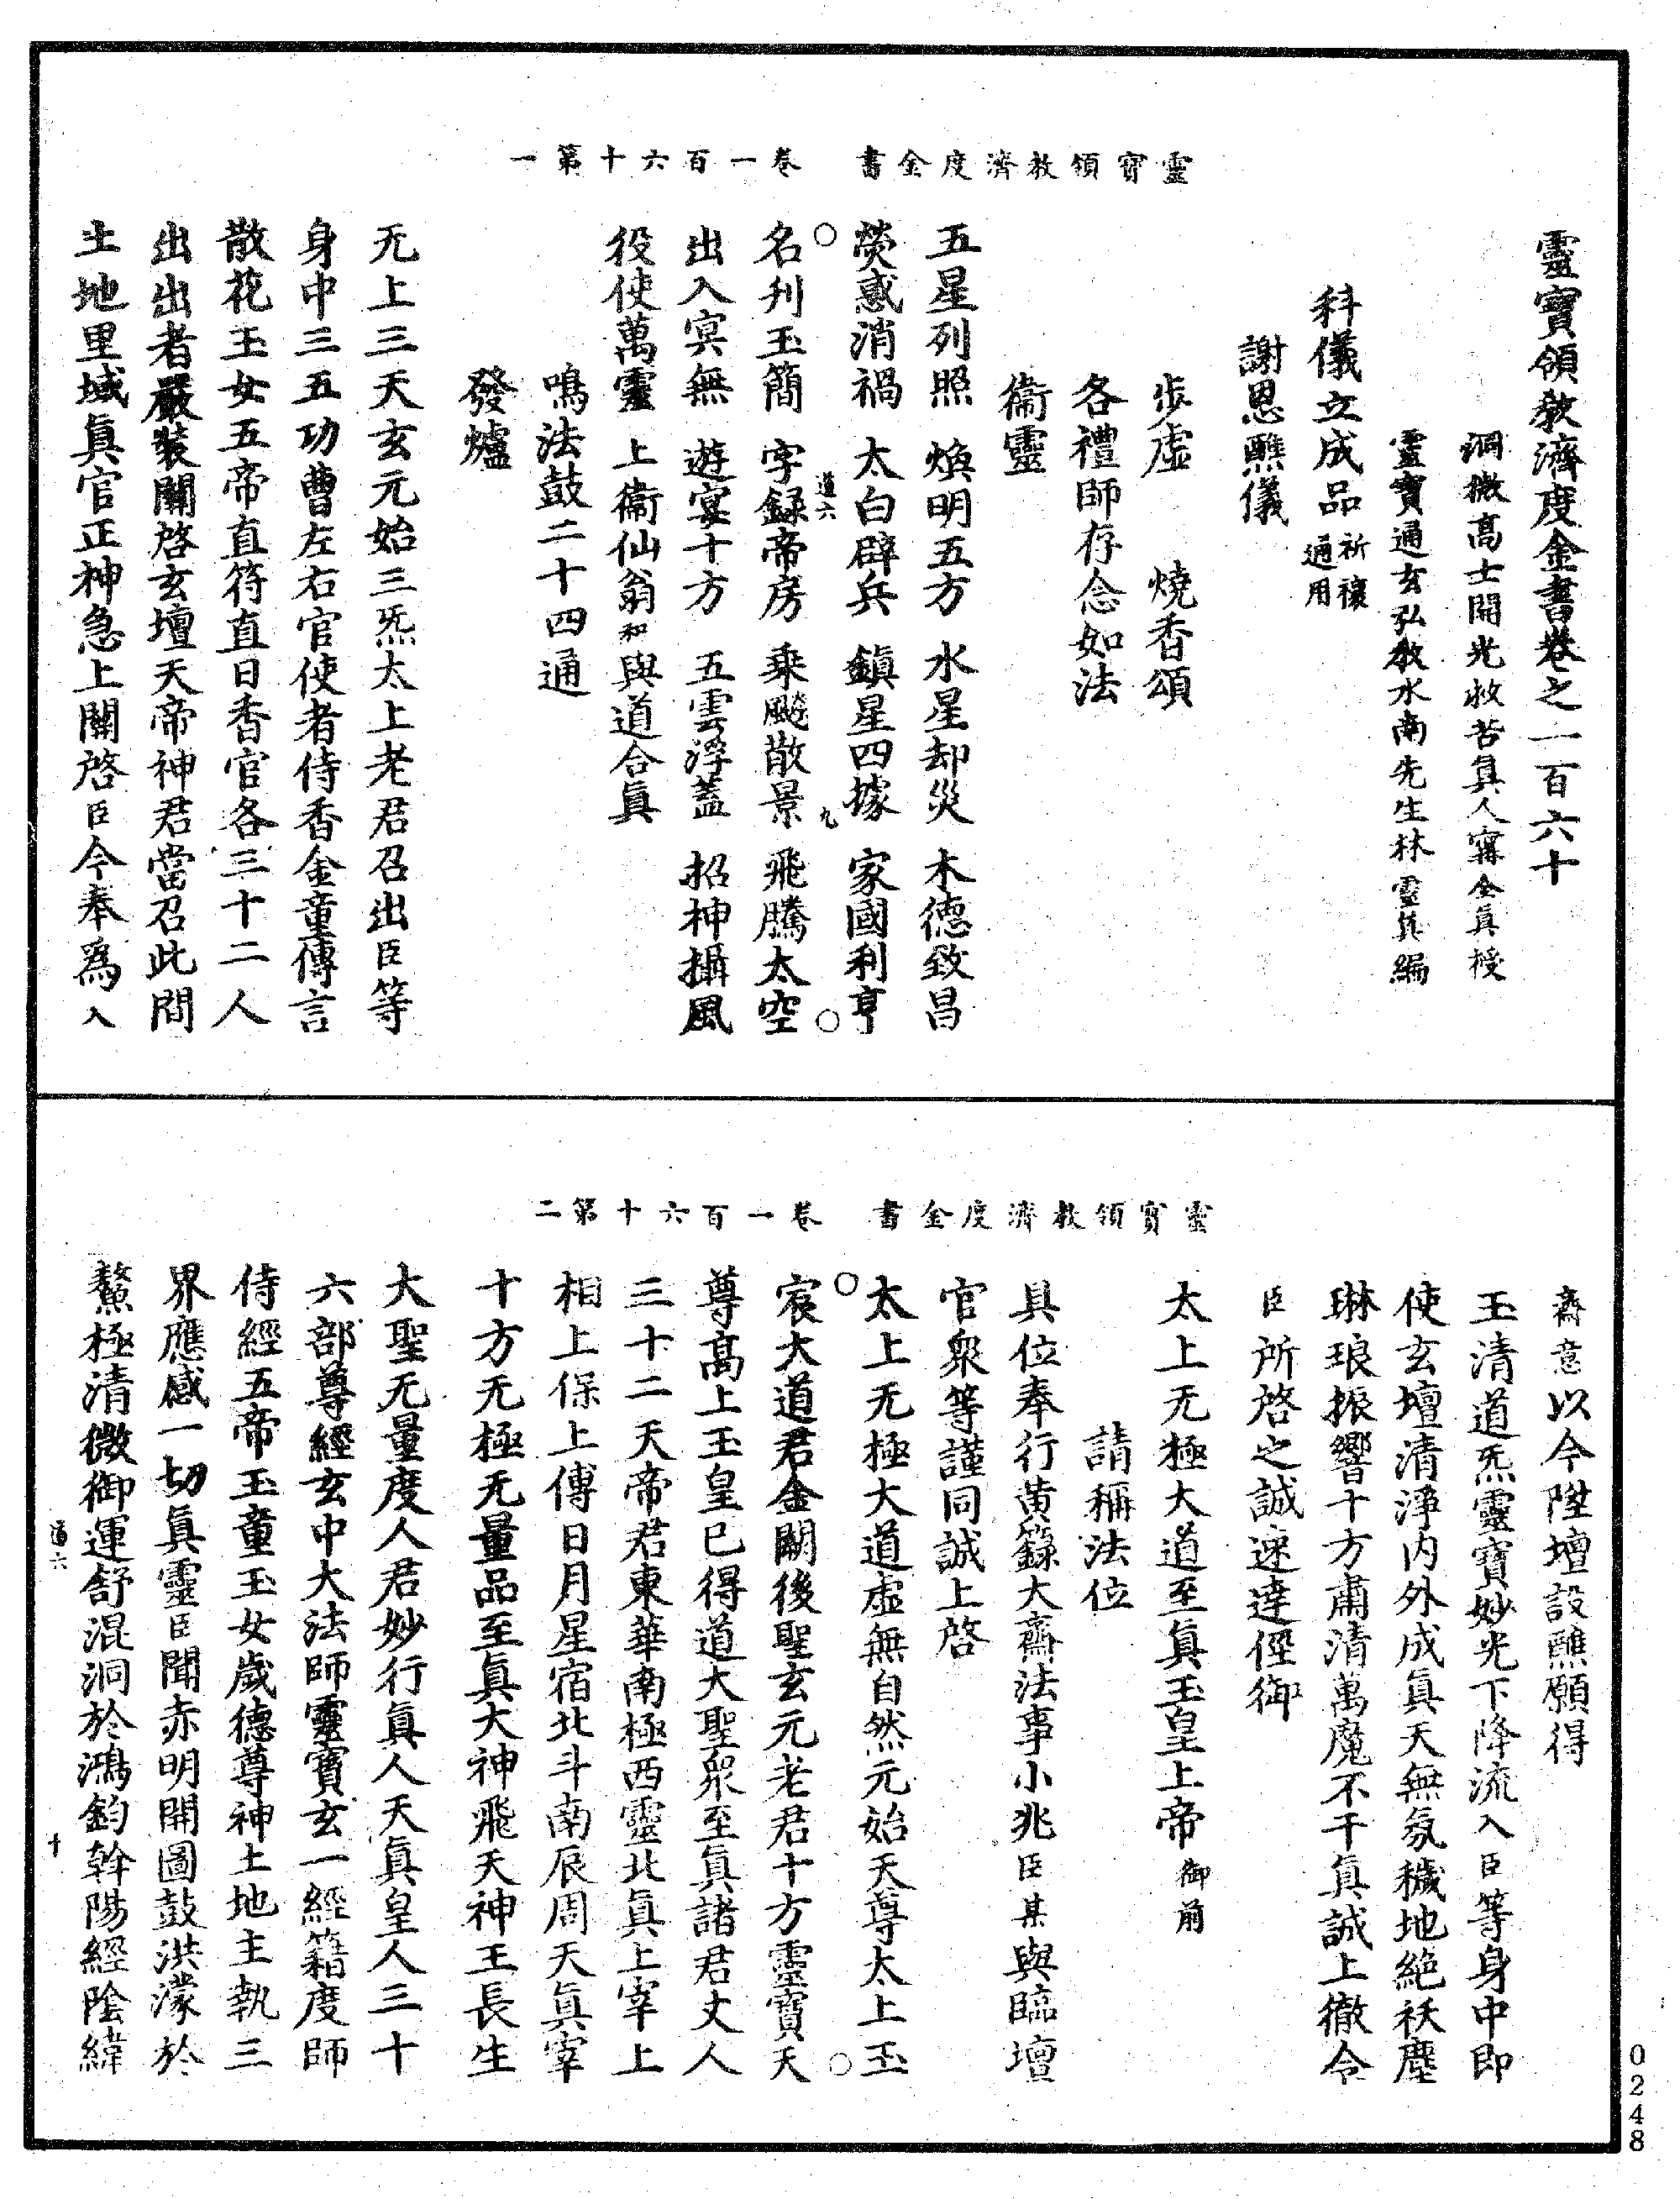 靈寶領教濟度金書　卷一百六十第一
靈寶領教濟度金書卷之一百六十
洞微高士開光救苦眞人甯全眞授
靈寶通玄弘教水南先生林靈眞編
科儀立成品祈禳通用
謝恩醮儀
步虛　燒香頌
各禮師存念如法
衞靈
五星列照　煥明五方　水星却災　木德致昌
熒惑消禍　太白辟兵　鎮星四據　家國利亨
○道六　九○
名刋玉簡　字録帝房　乘飈散景　飛騰太空
出入㝠無　遊宴十方　五雲浮蓋　招神攝風
役使萬靈　上衞仙翁和與道合眞
鳴法鼓二十四通
發爐
无上三天玄元始三炁太上老君召出臣等
身中三五功曹左右官使者侍香金童傳言
散花玉女五帝直符直日香官各三十二人
出出者嚴裝關啓玄壇天帝神君當召此間
土地里域眞官正神急上關啓臣今奉爲入
靈寶領教濟度金書　卷一百六十第二
齋意以今陞壇設醮願得
玉清道炁靈寶妙光下降流入臣等身中即
使玄壇清淨內外成眞天無氛穢地絕袄塵
琳琅振響十方肅清萬魔不干眞誠上徹令
臣所啓之誠速達徑御
太上无極大道至眞玉皇上帝御前
請稱法位
具位奉行黃籙大齋法事小兆臣某與臨壇
官衆等謹同誠上啓
太上无極大道虛無自然元始天尊太上玉
○　○
宸大道君金闕後聖玄元老君十方靈寶天
尊高上玉皇巳得道大聖衆至眞諸君丈人
三十二天帝君東華南極西靈北眞上宰上
相上保上傅日月星宿北斗南辰周天眞宰
十方无極无量品至眞大神飛天神王長生
大聖无量度人君妙行眞人天眞皇人三十
六部尊經玄中大法師靈寶玄一經籍度師
侍經五帝玉童玉女歲德尊神土地主執三
界應感一切眞靈臣聞赤明開圖鼓洪濛於
鰲極清微御運舒混洞於鴻鈞斡陽經陰緯
道六　十
0248